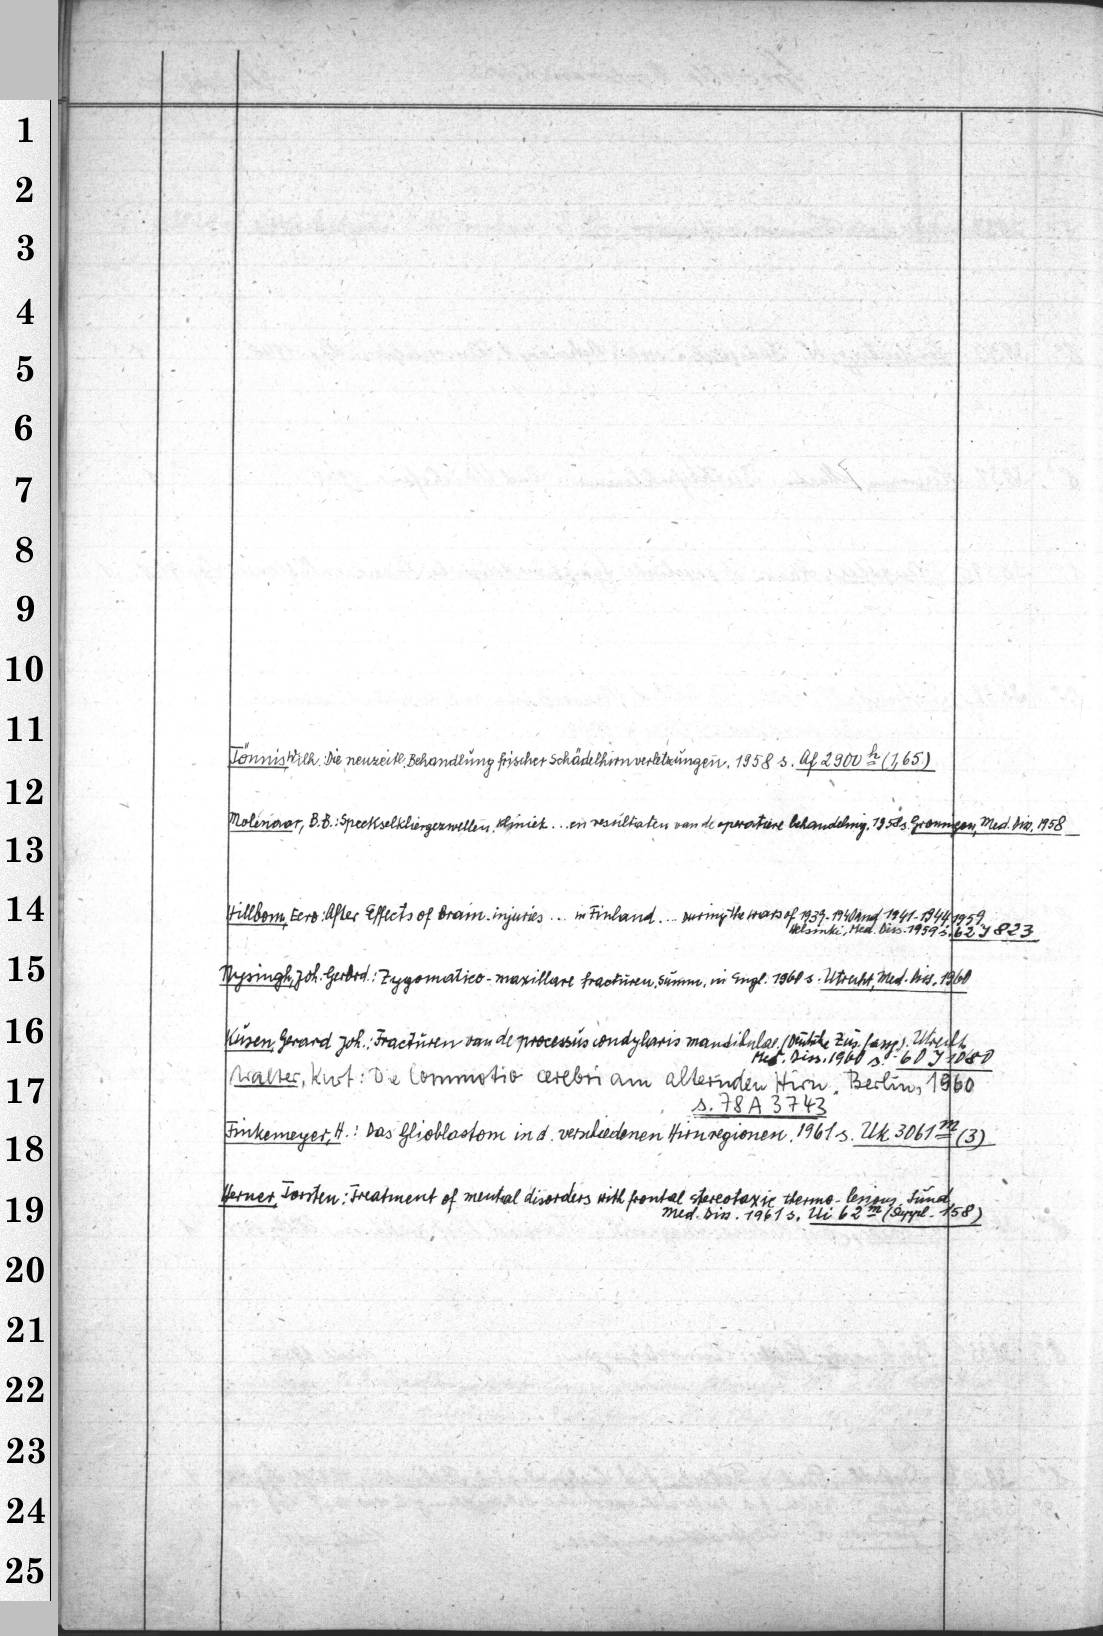 1
2
3
4
5
6
7
8
9
10
11
Tönnis, Wilh. Die neuzeitl. Behandlung frischer Schädelhirnverletzungen. 1958 s. Af 2900 h (1,65)
12
Molenaar, B.B.: Speekselkliergezwellen, kliniek... en resultaten van de operatieve behandeling. 1958 s. Groningen, Med. Diss. 1958
13
14
Hillbom, Eero: After Effects of brain-injuries ... in Finland ... during the wars of 1939-1940 and 1941-1944 1959
Helsinki, Med. Diss. 1959 s. 62 J 823
15
Nysingh, Joh. Gerbrd.: Zygomatico-maxillare fracturen. Summ. in Engl. 1960 s. Utrecht, Med. Diss. 1960
16
Küsen, Gerard Joh.: Fracturen van de processus condylaris mandibulae. (Deutsche Zus.fassg). Utrecht
Med. Diss. 1960 s. 60 J 1080
17
Walter, Kurt: Die Commotio cerebri am alternden Hirn. Berlin, 1960
s. 78 A 3743
18
Finkemeyer, H.: Das Glioblastom in d. verschiedenen Hirnregionen. 1961 s. Uk 3061 m (3)
19
Herner, Torsten: Treatment of mental disorders with frontal stereotaxic thermo-lesions. Lund
Med. Diss. 1961 s. Ui 62 m (Suppl. 158)
20
21
22
23
24
25